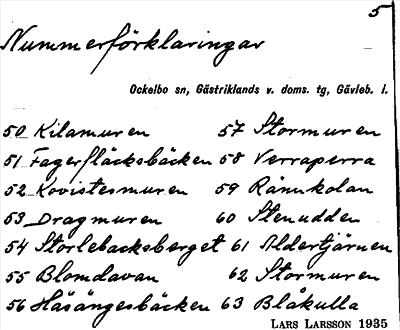 5
Nummerförklaringar
Ockelbo sn, Gästriklands v. doms. tg, Gävleb. l.
50 Kilamuren 57 Stormuren
51 Fagerfläcksbäcken 58 Verraperra
52 Kovistesmuren 59 Rännkolan
53 Dragmuren 60 Stenudden
54 Storlebacksberget 61 Aldertjärnen
55 Blomdavan 62 Stormuren
56 Håsängesbäcken 63 Blåkulla
LARS LARSSON 1935